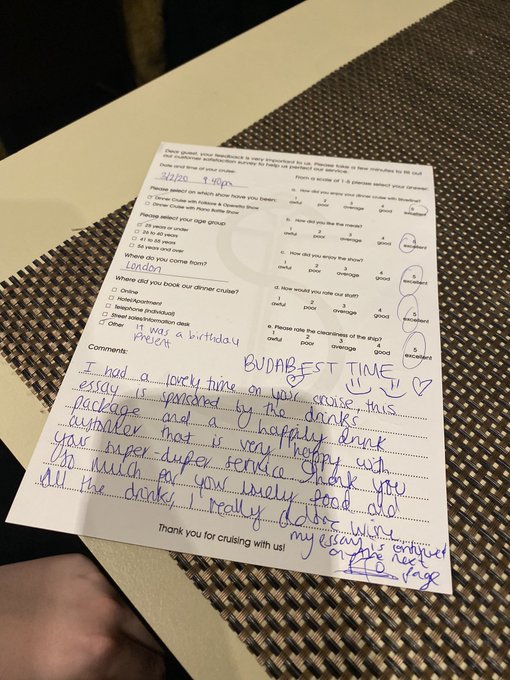 Dear guest, your feedback is very important to us. Please take a few minutes to fill out
our customer satisfaction survey to help us perfect our service.
Date and time of your cruise:
2/2/20 9.40pm
Please select on which show have you been:
Dinner Cruise with Folklore & Operetta Show
Dinner Cruise with Piano Battle Show
Please select your age group
25 years or under
26 to 40 years
41 to 55 years
56 years and over
Where do you come from?
London
Where did you book our dinner cruise?
Online
Hotel/Apartment
Telephone (individual)
Street sales/information desk
Other it was a birthday
present
From a scale of 1-5 please select your answer:
a. How did you enjoy your dinner cruise with
1 2 3 4 5
awful poor average good excellent
b. How did you like the meals?
1 2 3 4 5
awful poor average good excellent
c. How did you enjoy the show?
1 2 3 4 5
awful poor average good excellent
d. How would you rate our staff?
1 2 3 4 5
awful poor average good excellent
e. Please rate the cleanliness of the ship?
1 2 3 4 5
awful poor average good excellent
Comments:
BUDABEST TIME
I had a lovely time on your cruise, this
essay is sponsored by the drinks
package and a happily drunk
that is very happy with
your super-duper service thank you
so much for your lovely food and
all the drinks, I really adore wine
my essay is continued
on the next
page
Thank you for cruising with us!